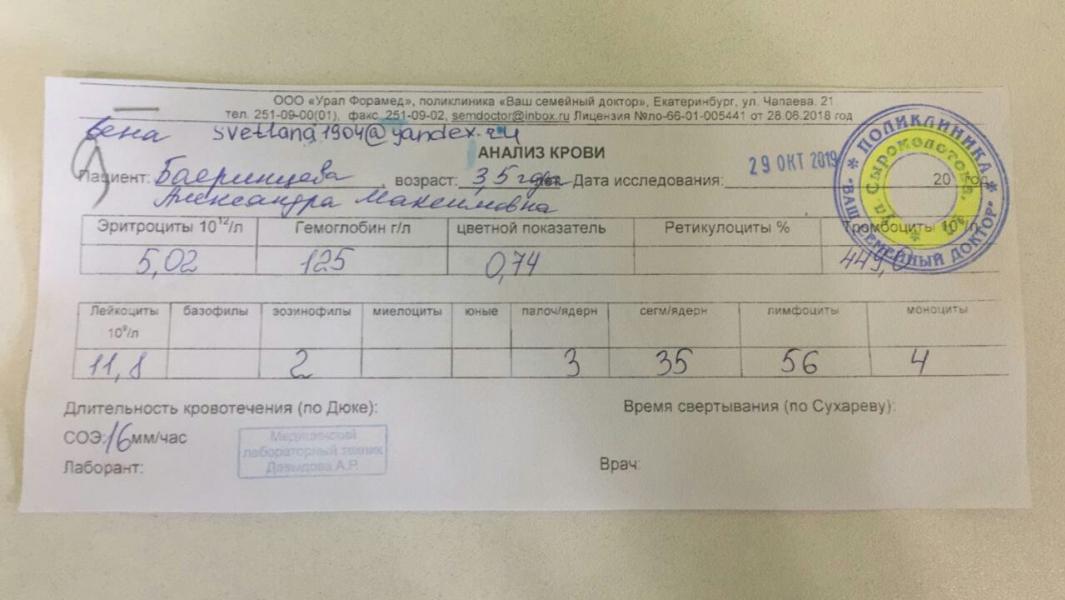 ООО «Урал Форамед», поликлиника «Ваш семейный доктор», Екатеринбург, ул. Чапаева, 21
тел. 251-09-00(01), факс 251-09-02, semdoctor@inbox.ru Лицензия №ло-66-01-005441 от 28.06.2018 год
вена svetlana1904@yandex.ru
АНАЛИЗ КРОВИ
29 ОКТ 2019
Пациент: возраст: 3,5 года Дата исследования: 20 год
Александра Максимовна
Эритроциты 10¹²/л Гемоглобин г/л цветной показатель Ретикулоциты % Тромбоциты 10⁹/л
5,02 125 0,74
Лейкоциты 10⁹/л базофилы эозинофилы миелоциты юные палоч/ядерн сегм/ядерн лимфоциты моноциты
11,8 2 3 35 56 4
Длительность кровотечения (по Дюке): Время свертывания (по Сухареву):
СОЭ: 16 мм/час
Медицинский
лабораторный техник
Давыдова А.Р.
Лаборант: Врач:
* ПОЛИКЛИНИКА * "ВАШ СЕМЕЙНЫЙ ДОКТОР"